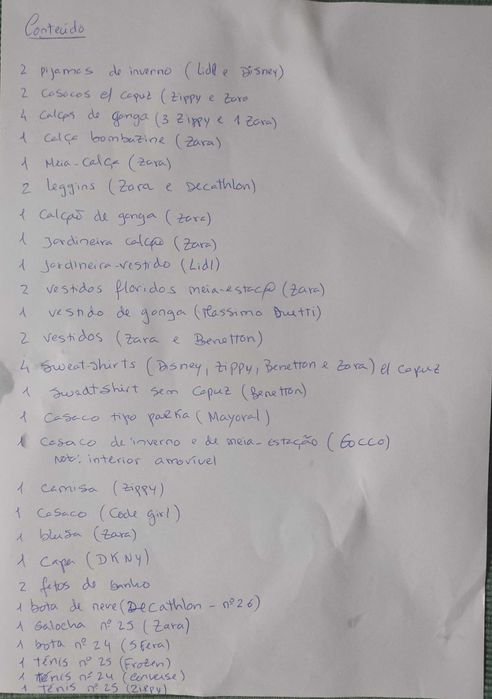 Conteúdo
2 pijamas de inverno (Lidl e Disney)
2 casacos c/ capuz (Zippy e Zara
4 calças de ganga (3 Zippy e 1 Zara)
1 calça bombazine (Zara)
1 Meia-calça (Zara)
2 leggins (Zara e Decathlon)
1 calção de ganga (Zara)
1 Jardineira calção (Zara)
1 Jardineira-vestido (Lidl)
2 vestidos floridos meia-estação (Zara)
1 vestido de ganga (Massimo Duetti)
2 vestidos (Zara e Benetton)
4 Sweat-shirts (Disney, Zippy, Benetton e Zara) c/ capuz
1 Sweatshirt sem capuz (Benetton)
1 Casaco tipo parka (Mayoral)
1 Casaco de inverno e de meia-estação (Gocco)
Nota: interior amovível
1 camisa (Zippy)
1 Casaco (Code girl)
1 blusa (Zara)
1 Capa (DKNY)
2 fatos de banho
1 bota de neve (Decathlon - nº 26)
1 Galocha nº 25 (Zara)
1 bota nº 24 (Sfera)
1 ténis nº 25 (Frozen)
1 ténis nº 24 (Converse)
1 ténis nº 25 (Zippy)